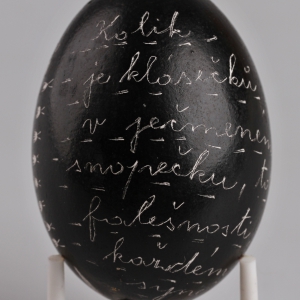 Kolik
je klásečků
v ječmenem
snopečku, to
falešnosti
každém